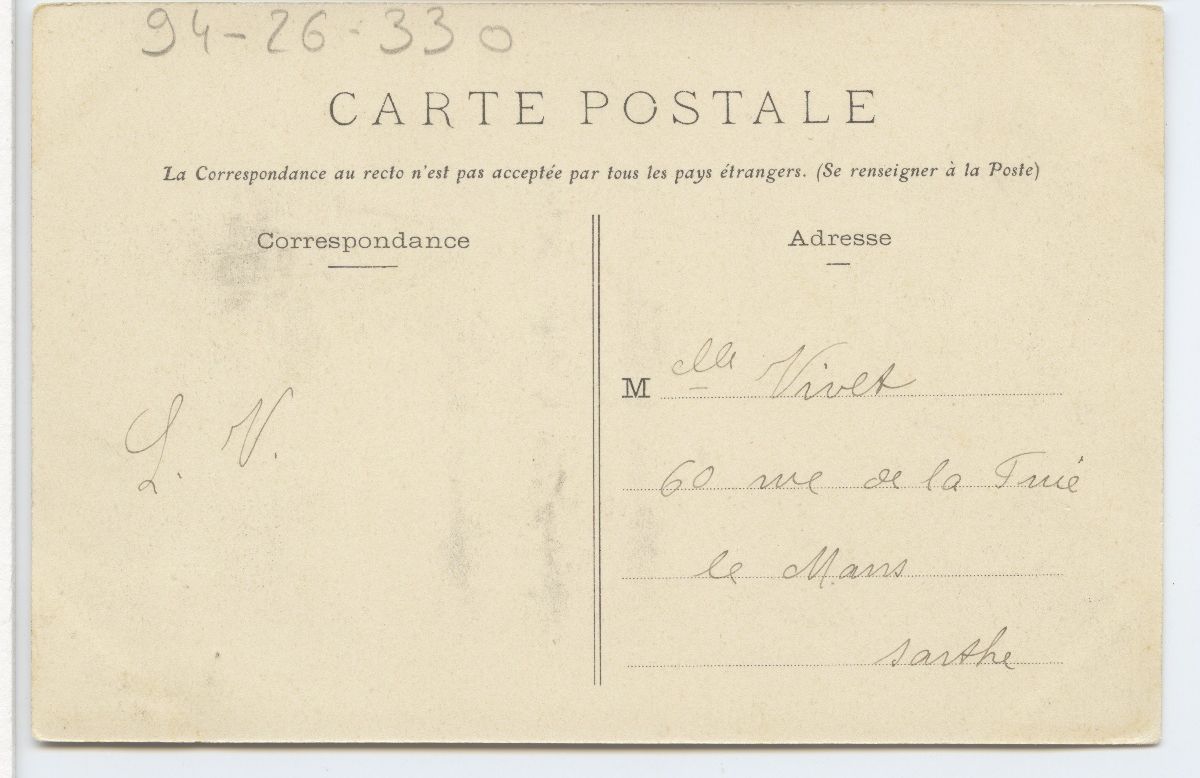 94-26-330
CARTE POSTALE
La Correspondance au recto n'est pas acceptée par tous les pays étrangers. (Se renseigner à la Poste)
Correspondance
Adresse
L. V.
Melle Vivet
60 rue de la
le Mans
sarthe